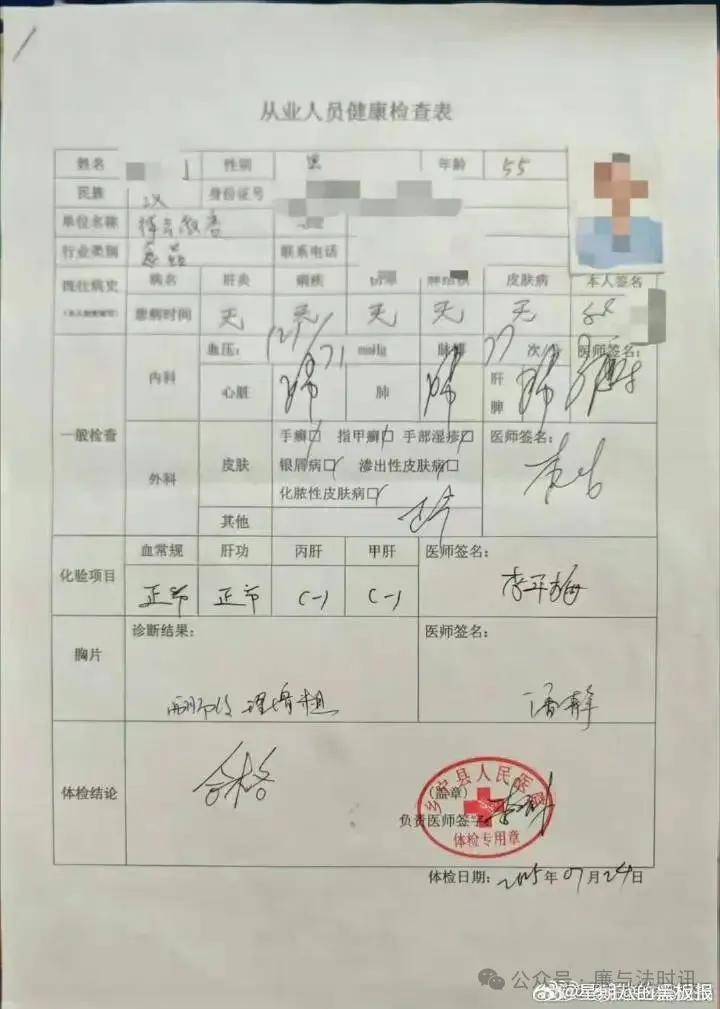 从业人员健康检查表
姓名 性别 男 年龄 55
民族 汉 身份证号
单位名称
行业类别 食品 联系电话
既往病史 病名 肝炎 痢疾 伤寒 肺结核 皮肤病 本人签名
患病时间 无 无 无 无 无
血压: 121/71 mmHg 脉搏 77 次/ 医师签名:
一般检查 内科 心脏 肺 肝脾
外科 皮肤 手癣□ 指甲癣□ 手部湿疹□ 医师签名:
银屑病□ 渗出性皮肤病□
化脓性皮肤病□
其他 正常
化验项目 血常规 肝功 丙肝 甲肝 医师签名:
正常 正常 (-) (-) 李平梅
胸片 诊断结果: 医师签名:
两肺纹理增粗 潘静
体检结论 合格
(盖章)
负责医师签字
乡宁县人民医院
体检专用章
体检日期: 2025年07月24日
公众号·廉与法时讯